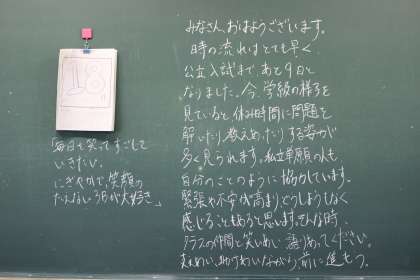 18
「毎日を笑ってすごして
いきたい。
にぎやかで、笑顔の
たえない3Bが大好き。」
みなさん、おはようございます。
時の流れはとても早く
公立入試まであと9日と
なりました。今、学級の様子を
見ていると休み時間に問題を
解いたり、教えあったりする姿が
多く見られます。私立単願の人も
自分のことのように協力しています。
緊張や不安が高まり、どうしようもなく
感じることもあると思います。そんな時、
クラスの仲間と笑いあい、語りあってください。
支えあい、助けあいながら前に進もう。